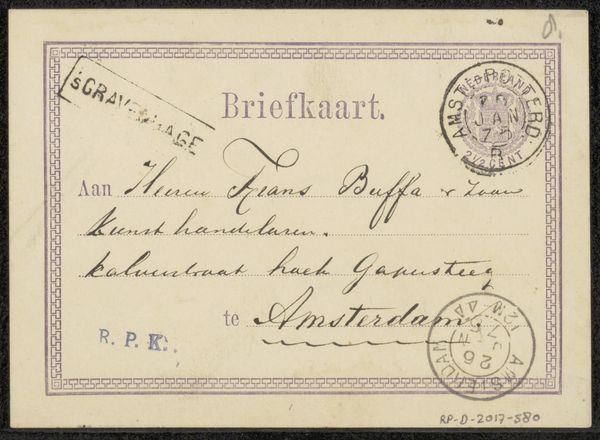 'sGRAVENHAGE
Briefkaart.
NEDERLAND
AMSTERD.
JAN
75
2½ CENT
Aan Heeren Frans Buffa & Zoon
Kunsthandelaren.
Kalverstraat hoek Gapersteeg
te Amsterdam
R. P. K.
AMSTERDAM
26
RP-D-2017-580